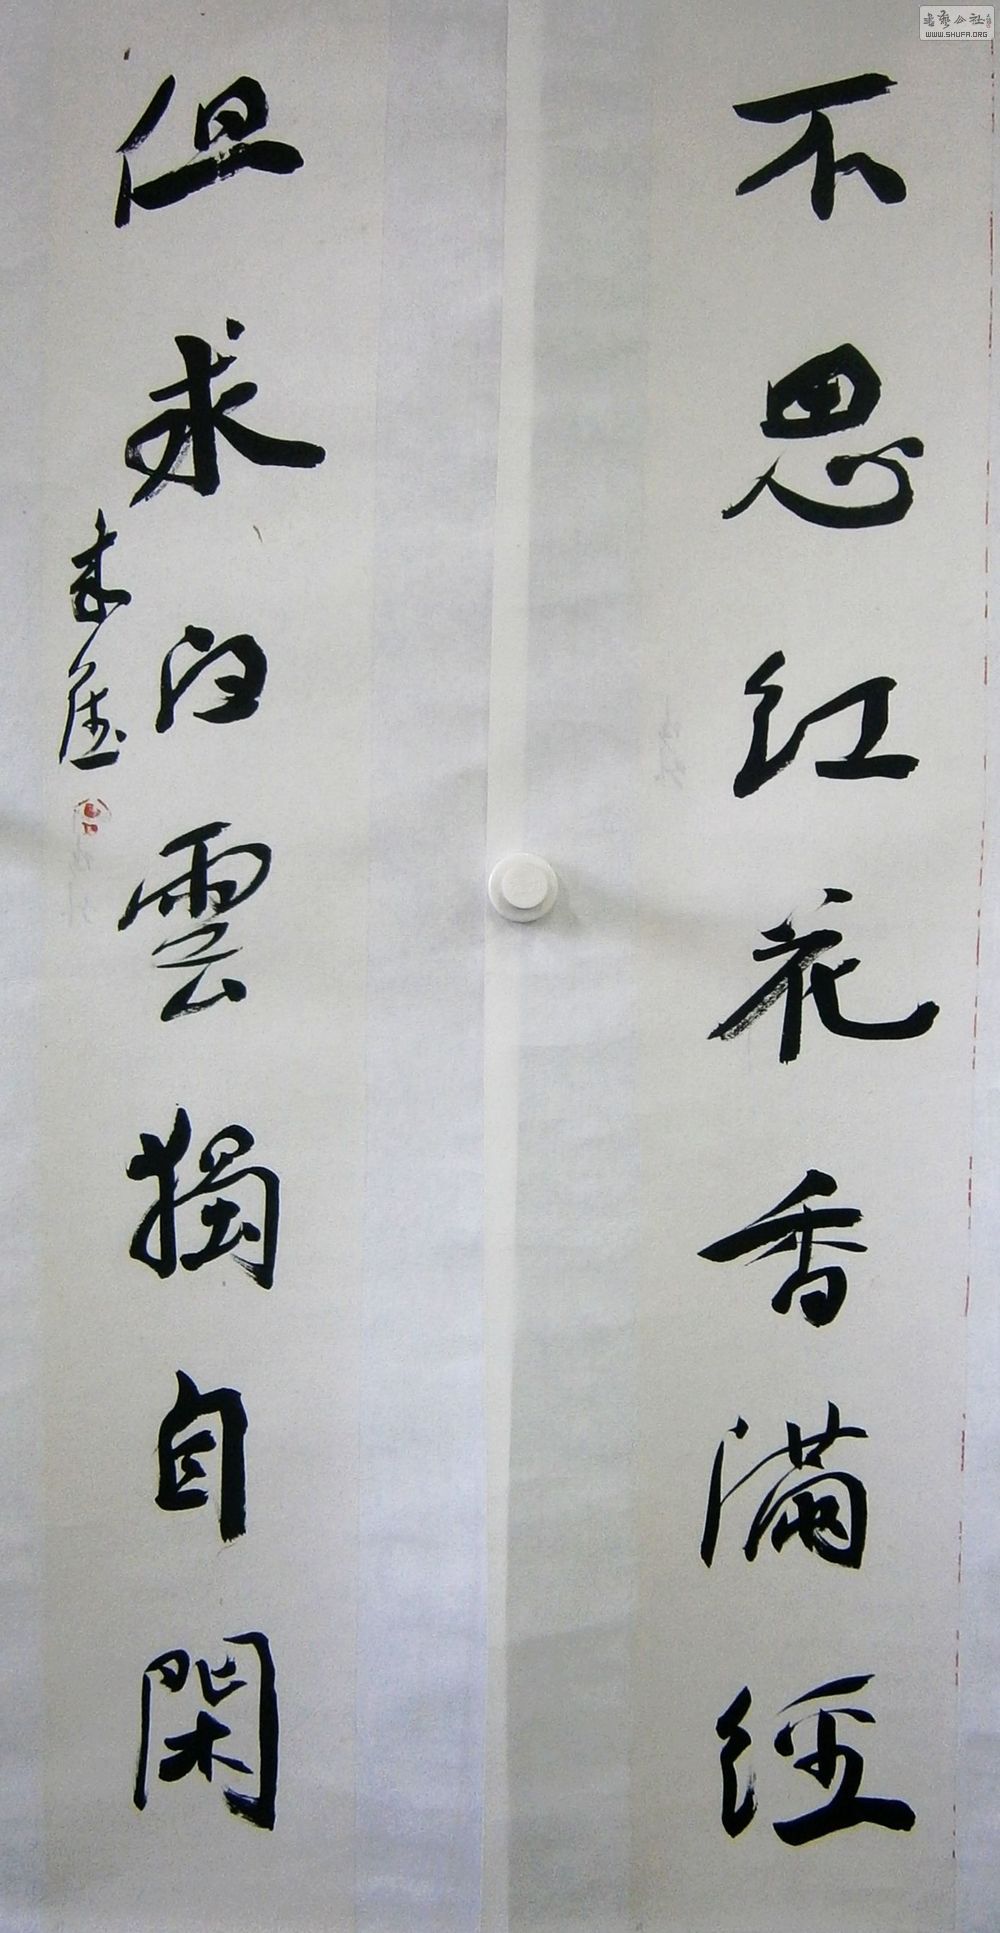 不思红花香滿經
但求白雲獨自閑
书艺公社
WWW.SHUFA.ORG